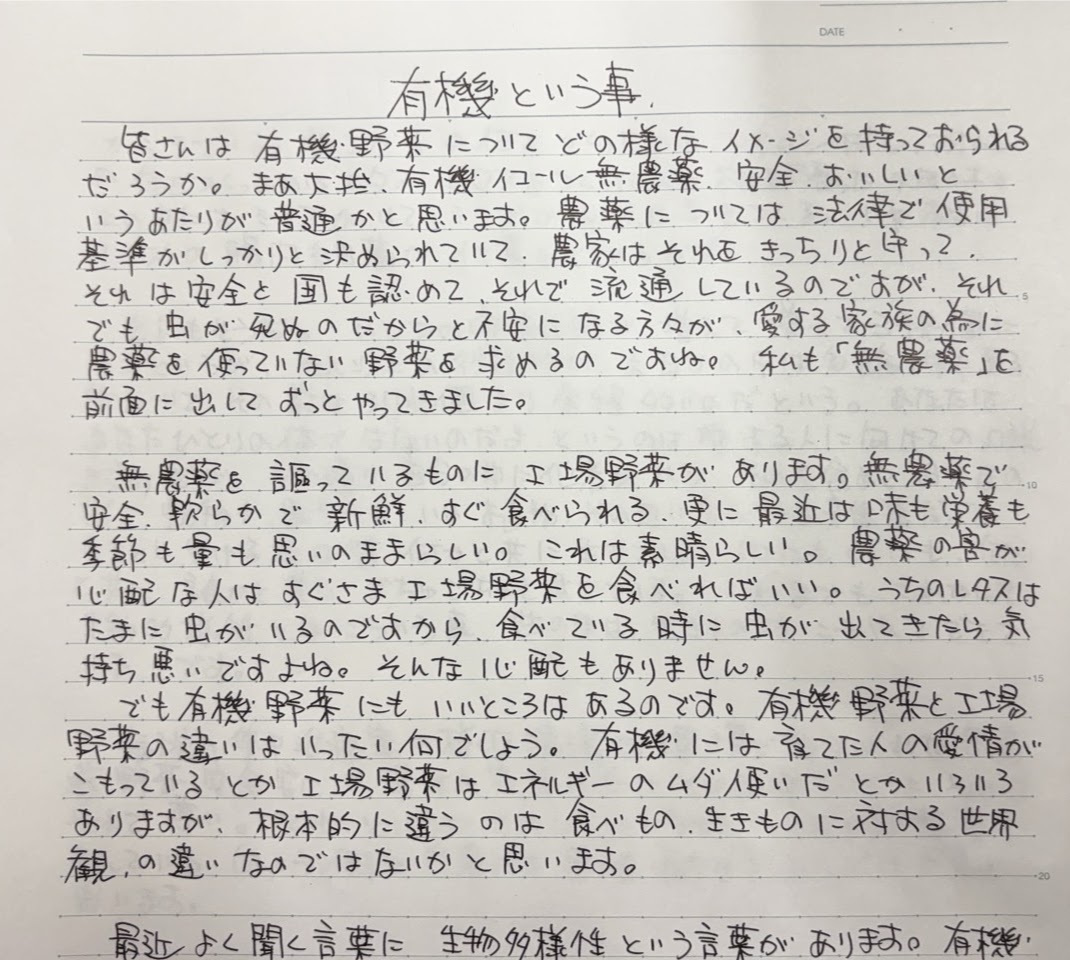 DATE
有機という事.
皆さんは 有機野菜について どの様な イメージを持っておられる
だろうか。まあ大抵、有機イコール無農薬、安全、おいしいと
いうあたりが普通かと思います。農薬については法律で使用
基準がしっかりと決められていて、農家はそれをきっちりと守って、
それは安全と国も認めて、それで流通しているのですが、それ
でも虫が死ぬのだからと不安になる方々が、愛する家族の為に
農薬を使っていない野菜を求めるのですね。私も「無農薬」を
前面に出してずっとやってきました。
無農薬を謳っているものに工場野菜があります。無農薬で
安全、軟らかで新鮮、すぐ食べられる、更に最近は味も栄養も
季節も量も思いのままらしい。これは素晴らしい。農薬の害が
心配な人はすぐさま工場野菜を食べればいい。うちのレタスは
たまに虫がいるのですから、食べている時に虫が出てきたら気
持ち悪いですよね。そんな心配もありません。
でも有機野菜にもいいところはあるのです。有機野菜と工場
野菜の違いはいったい何でしょう。有機には育てた人の愛情が
こもっているとか工場野菜はエネルギーのムダ使いだとかいろいろ
ありますが、根本的に違うのは食べもの、生きものに対する世界
観、の違いなのではないかと思います。
最近よく聞く言葉に生物多様性という言葉があります。有機
5
10
15
20